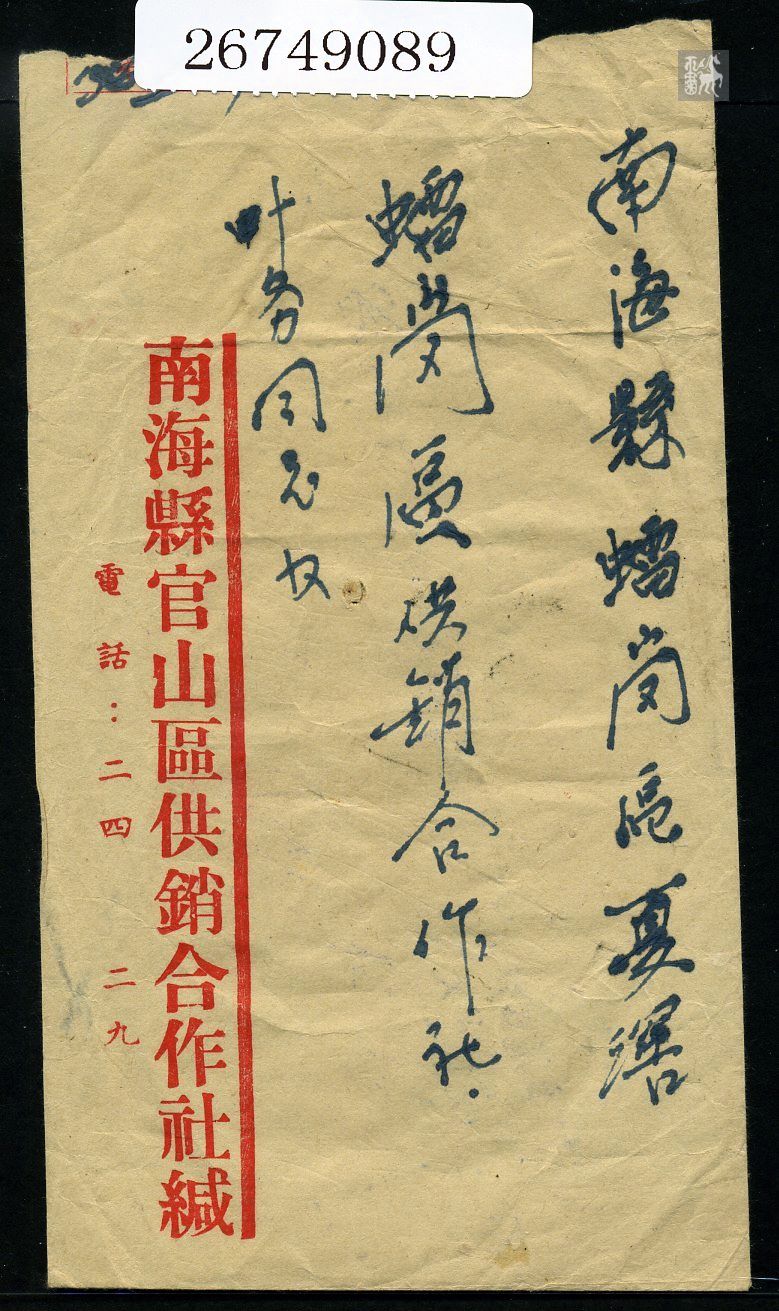 26749089
南海縣蟠岗區夏滘
蟠岗區供銷合作社.
叶务同志收
南海縣官山區供銷合作社緘
電話：二四 二九